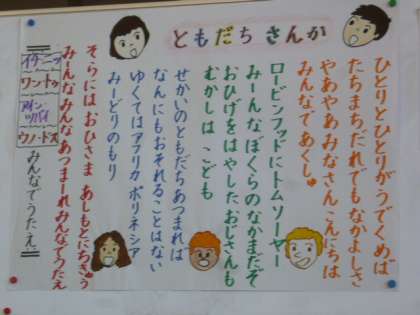 ともだち さんか
ひとりとひとりが うでくめば
たちまちだれでも なかよしさ
やあやあみなさん こんにちは
みんなで あくしゅ
ロービンフッドに トムソーヤー
みーんなぼくらの なかまだぞ
おひげをはやした おじさんも
むかしは こども
せかいのともだち あつまれば
なんにもおそれる ことはない
ゆくてはアフリカ ポリネシア
みーどりのもり
そらには おひさま あしもとに ちきゅう
みんな みんな あつまーれ みんなで うたえ
イチ・ニッ
ワン・トゥ
アイン・ツバイ
ウノ・ドス
みんなでうたえ